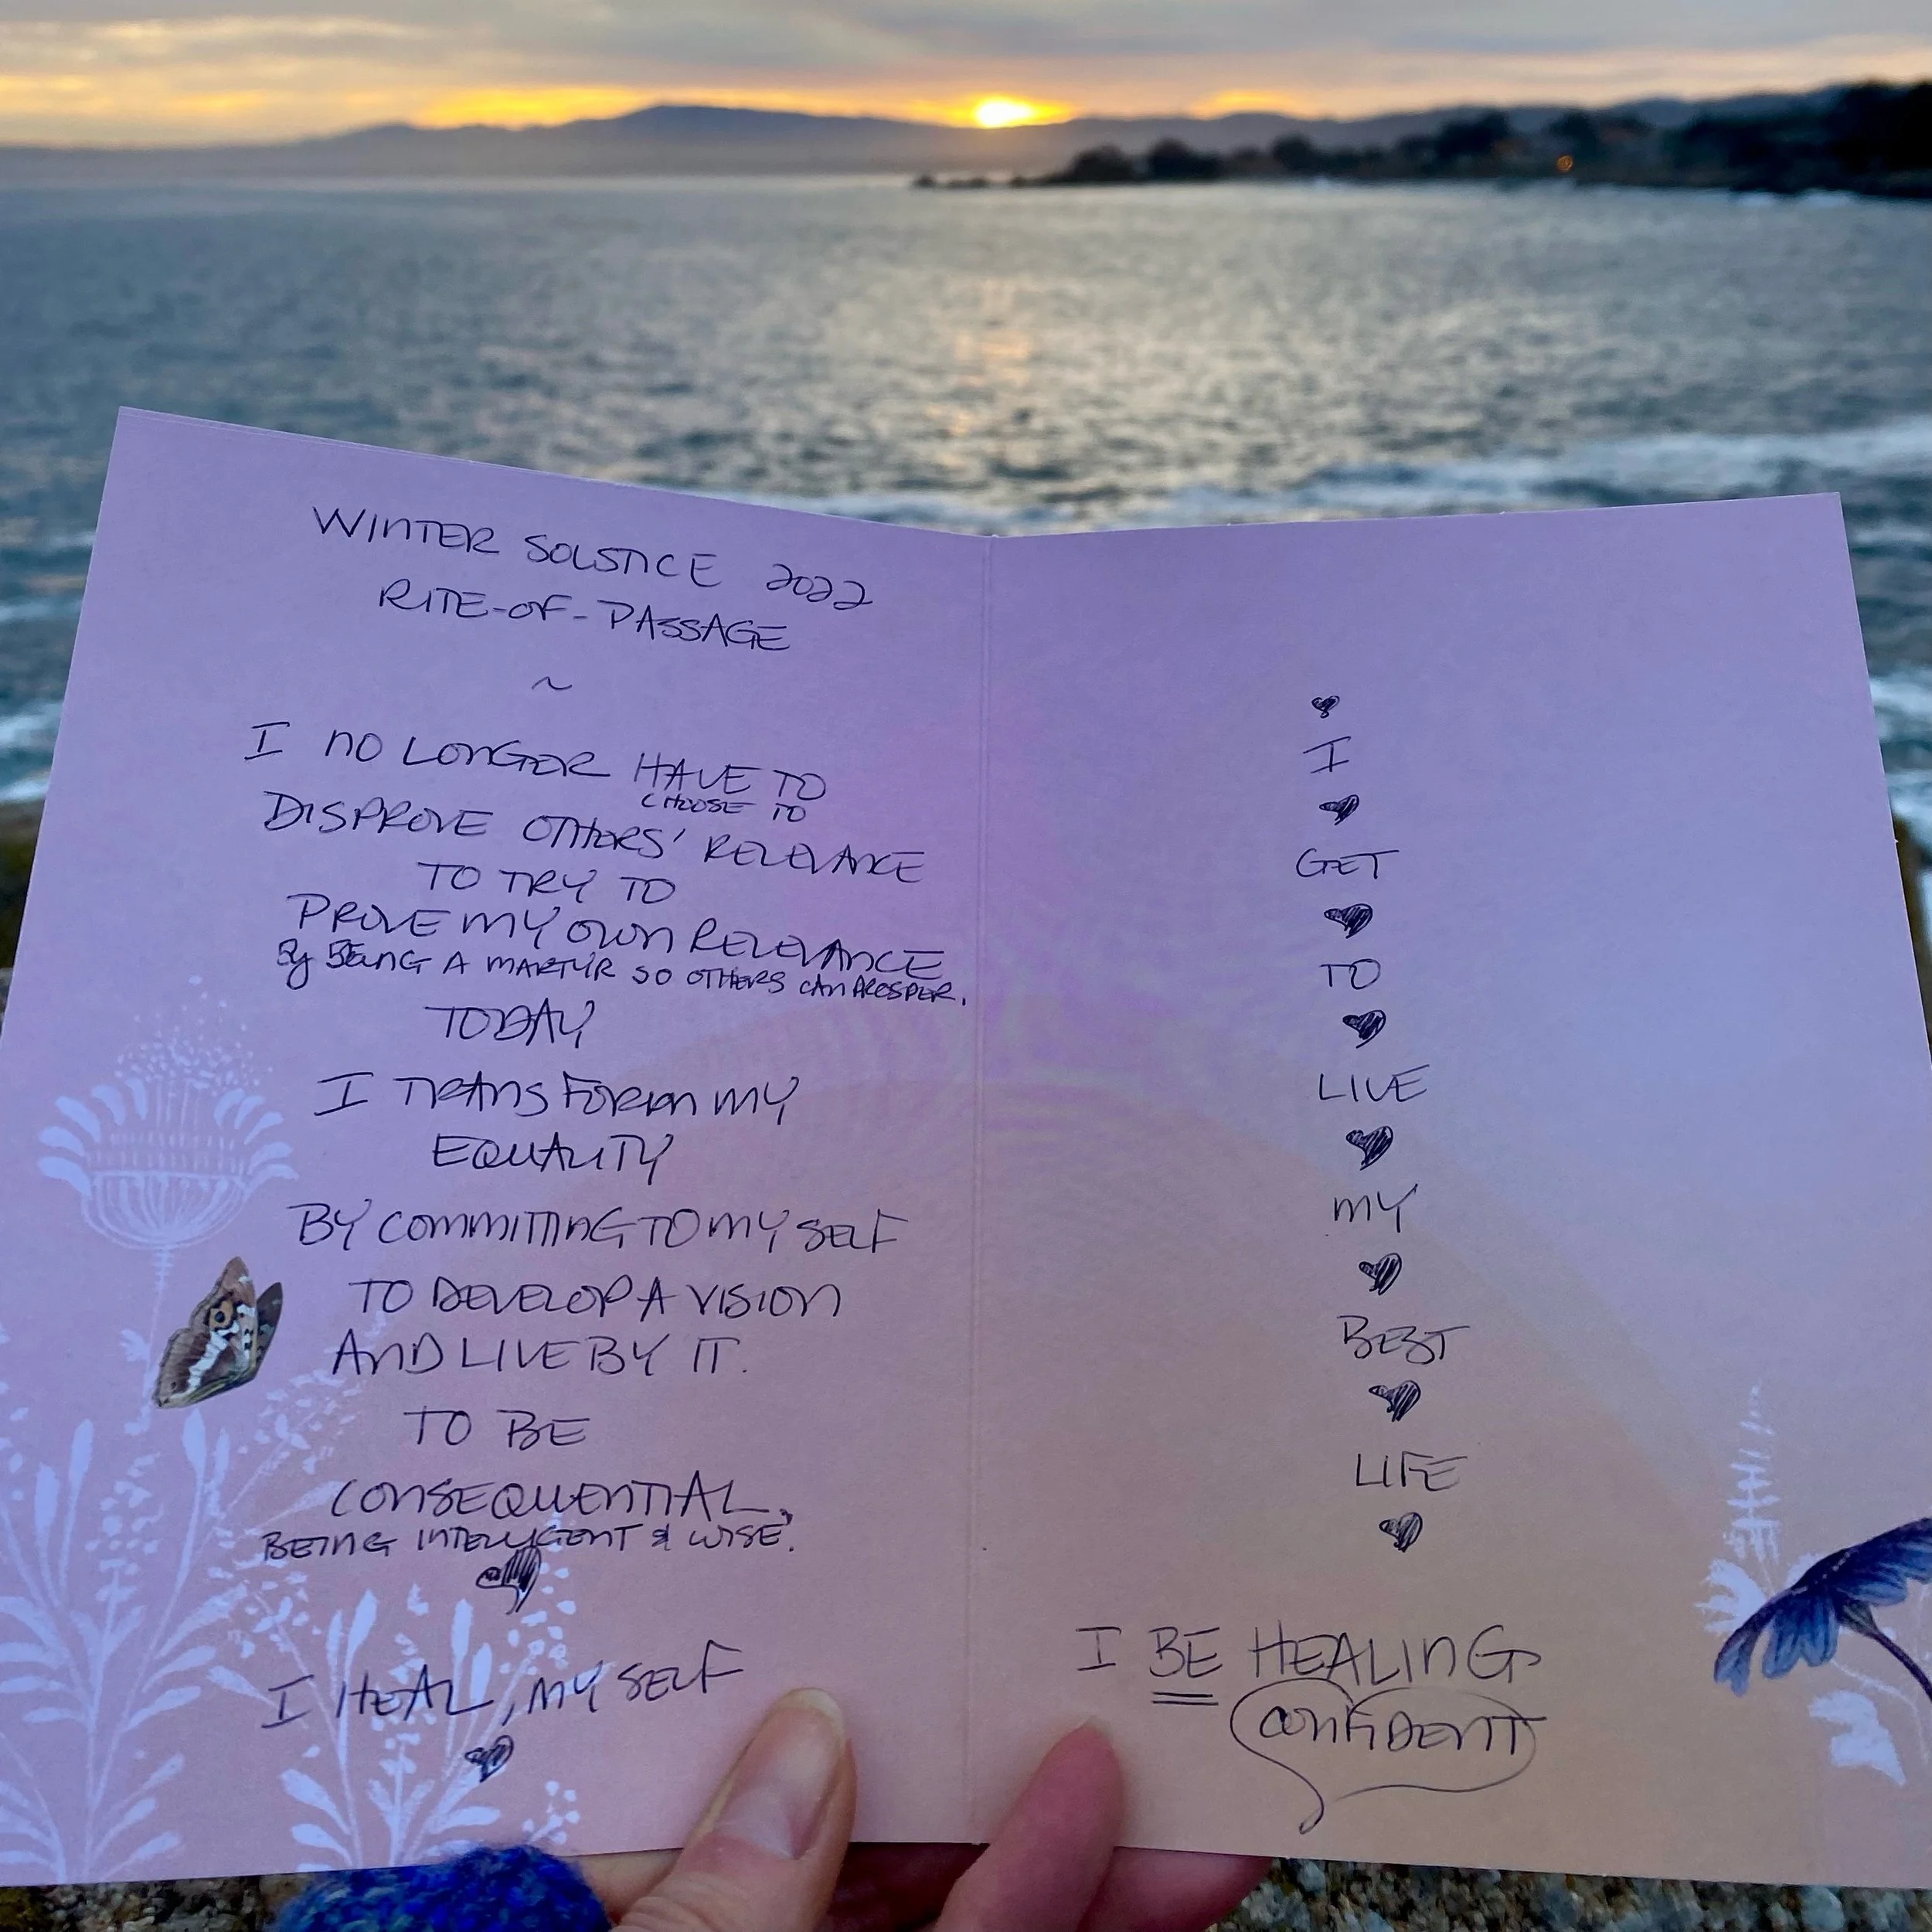 WINTER SOLSTICE 2022
RITE-OF-PASSAGE
~
I NO LONGER HAVE TO
CHOOSE TO
DISPROVE OTHERS' RELEVANCE
TO TRY TO
PROVE MY OWN RELEVANCE
By BEING A MARTYR SO OTHERS CAN PROSPER.
TODAY
I TRANSFORM MY
EQUALITY
BY COMMITTING TO MY SELF
TO DEVELOP A VISION
AND LIVE BY IT.
TO BE
CONSEQUENTIAL,
BEING INTELLIGENT & WISE.
I HEAL, MY SELF
♥
I
♥
GET
♥
TO
♥
LIVE
♥
MY
♥
BEST
♥
LIFE
♥
I BE HEALING
CONFIDENT